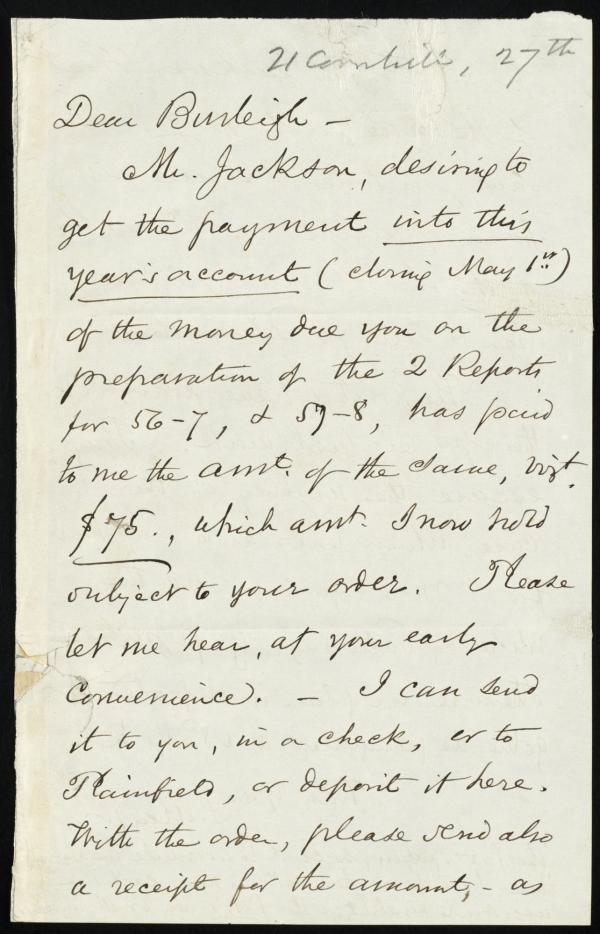 21 Cornhill, 27th
Dear Burleigh –
Mr. Jackson, desiring to
get the payment into this
year's account (closing May 1st.)
of the money due you on the
preparation of the 2 Reports
for 56-7, & 57-8, has paid
to me the amt. of the same, vizt.
$75., which amt. I now hold
subject to your order. Please
let me hear, at your early
convenience. – I can send
it to you, in a check, or to
Plainfield, or deposit it here.
With the order, please send also
a receipt for the amount, – as